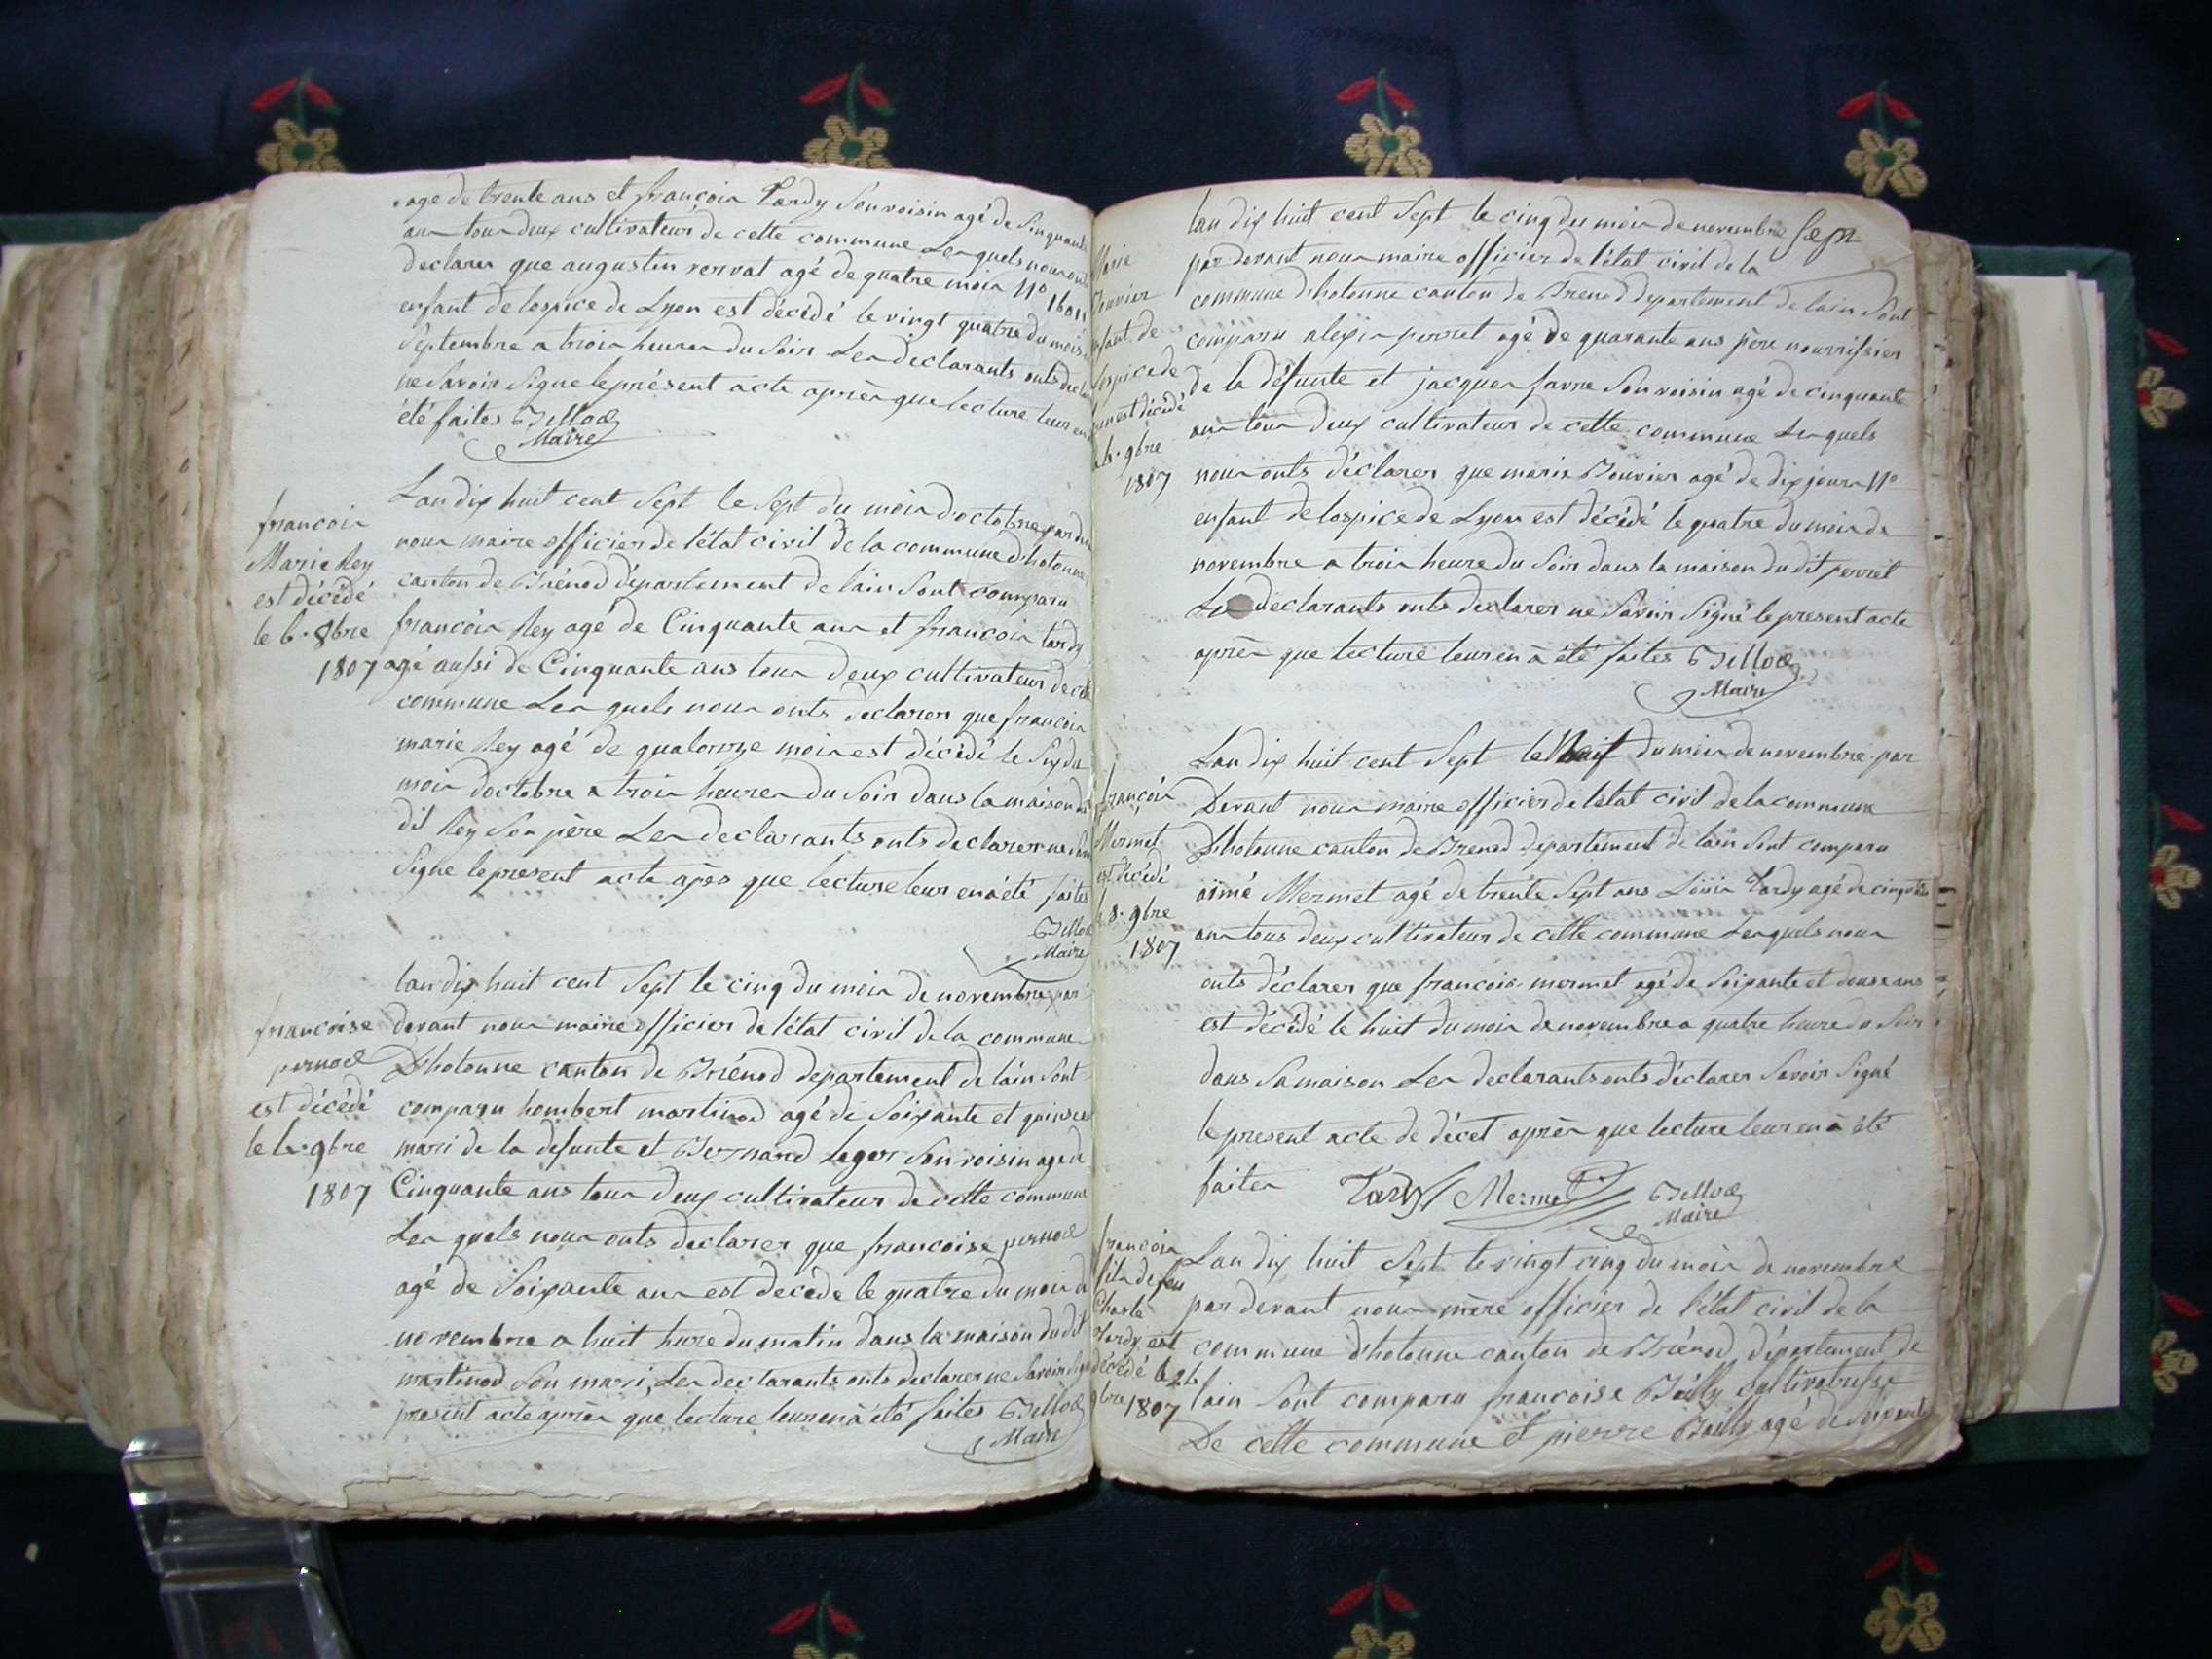 age de trente ans et francois tardy Son voisin agé de Sinquante
ans tous deux cultivateur de cette commune Les quels nous onts
declarer que augustin vervat agé de quatre mois No 1601
enfant de lospice de Lyon est décédé le vingt quatre du mois
Septembre a trois heures du Soir Les declarants onts
ne Savoir Signe le présent acte après que lecture leur en
été faites
Maire
francois
Marie Rey
est décédé
le 6. 8bre
1807
Lan dix huit cent Sept le Sept du mois doctobre par
nous maire officier de l'état civil de la commune d'hotonne
canton de Brénod département de lain Sont comparu
francois Rey agé de Cinquante ans et francois tardy
agé aussi de Cinquante ans tous deux cultivateur de cette
commune Les quels nous onts declarer que francois
marie Rey agé de quatorze mois est décédé le Six du
mois doctobre a trois heures du Soir dans la maison du
dit Rey Son père Les declarants onts declarer ne
Signe le present acte apès que lecture leur en a été faites
Maire
francoise
pernod
est décédé
le 4. 9bre
1807
lan dix huit cent Sept le cinq du mois de novembre par
devant nous maire officier de l'état civil de la commune
D'hotonne canton de Brénod departement de lain Sont
comparu hombert martinod agé de Soixante et quinse
mari de la defunte et Bernard Leger Son voisin age de
Cinquante ans tous deux cultivateur de cette commune
Les quels nous onts declarer que francoise pernod
agé de Soixante ans est decede le quatre du mois de
novembre a huit hure du matin dans la maison du dit
martinod Son mari, Les declarants onts declarer ne Savoir
present acte après que lecture leur en a été faites
Maire
Sept
Marie
Bouvier
enfant de
lospice de
est décédé
4. 9bre
1807
lan dix huit cent Sept le cinq du mois de novembre
par devant nous maire officier de l'état civil de la
commune d'hotonne canton de Brenod departement de lain Sont
comparu alexis perret agé de quarante ans père nourrissier
de la défunte et jacques favre Son voisin agé de cinquante
ans tous deux cultivateur de cette commune Les quels
nous onts déclarer que marie Bouvier agé de dix jours No
enfant de lospice de Lyon est décédé le quatre du mois de
novembre a trois heure du Soir dans la maison du dit perret
declarants onts declarer ne Savoir Signé le present acte
après que lecture leur en à été faites
Maire
francois
Mermet
est décédé
le 8. 9bre
1807
Lan dix huit cent Sept le du mois de novembre par
Devant nous maire officier de l'état civil de la commune
D'hotonne canton de Brenod departement de lain Sont comparu
aimé Mermet agé de trente Sept ans Louis tardy agé de cinquante
ans tous deux cultivateur de cette commune Les quels nous
onts déclarer que francois mermet agé de Soixante et douse ans
est décédé le huit du mois de novembre a quatre heure du Soir
dans Sa maison Les declarants onts déclarer Savoir Signé
le present acte de décet après que lecture leur en à été
faites Tardy Mermet
Maire
francois
fils de feu
Charle
tardy est
décédé le 24
9bre 1807
Lan dix huit Sept le vingt cinq du mois de novembre
par devant nous mère officier de l'état civil de la
commune d'hotonne canton de Brénod département de
lain Sont comparu francoise Bailly Cultivatrisse
De cette commune et pierre Bailly agé de Soixante